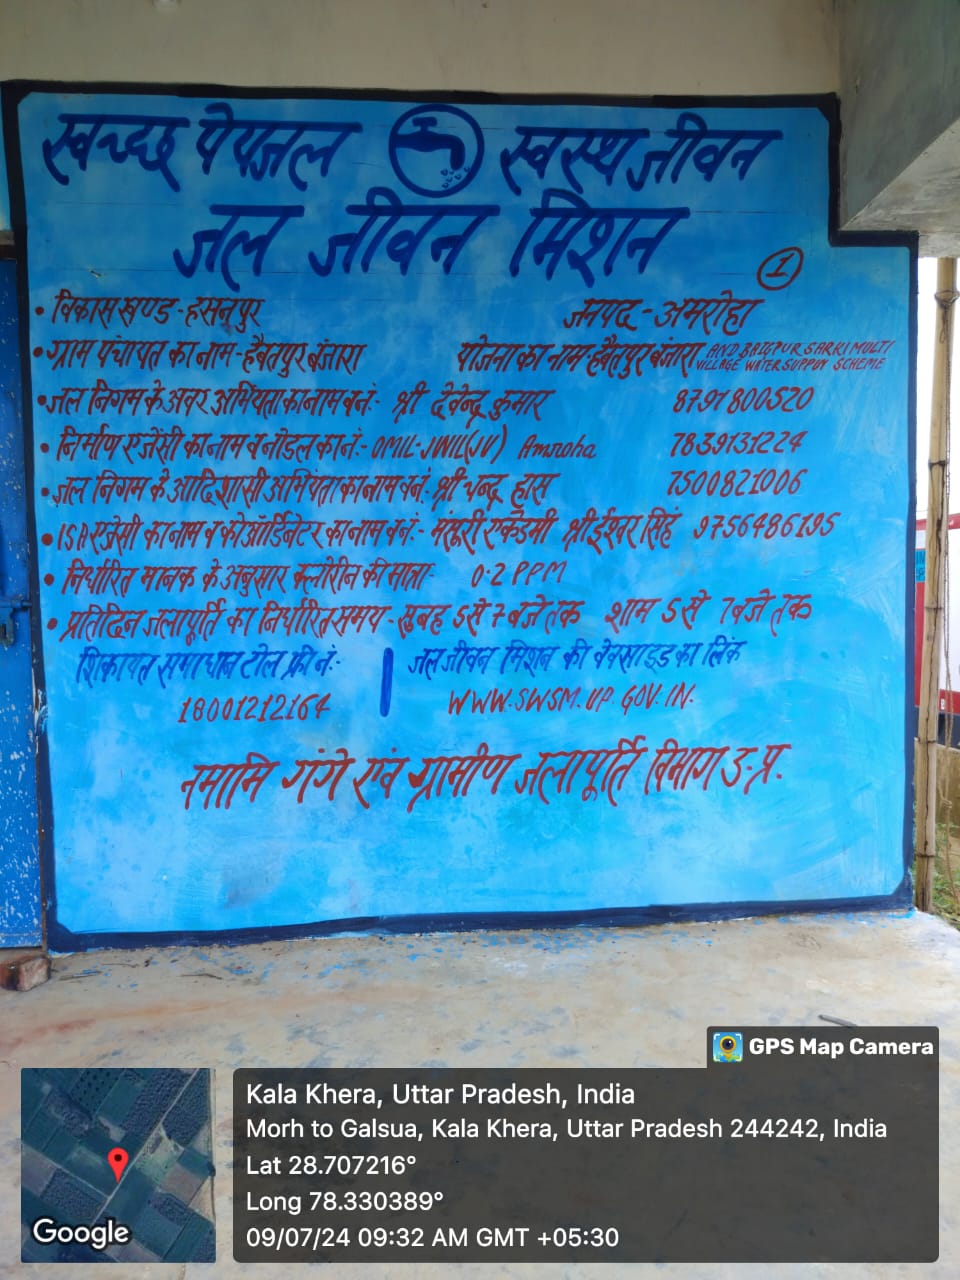 स्वच्छ पेयजल स्वस्थ जीवन
जल जीवन मिशन
1
• विकास खण्ड - हसनपुर जनपद - अमरोहा
• ग्राम पंचायत का नाम - हैबतपुर बंजारा योजना का नाम - हैबतपुर बंजारा AND BAIGPUR SARKI MULTI VILLAGE WATER SUPPUY SCHEME
• जल निगम के अवर अभियंता का नाम व नं:- श्री देवेन्द्र कुमार 8791800520
• निर्माण एजेंसी का नाम व नोडल का नं:- OMIL-JWIL(JV) Amroha 7839131224
• जल निगम के आदिशासी अभियंता का नाम व नं:- श्री चन्द्र हास 7500821006
• ISA एजेंसी का नाम व कोऑर्डिनेटर का नाम व नं:- मंसूरी एकेडमी श्री ईश्वर सिंह 9756486195
• निर्धारित मानक के अनुसार क्लोरीन की मात्रा - 0.2 PPM
• प्रतिदिन जलापूर्ति का निर्धारित समय - सुबह 5 से 7 बजे तक शाम 5 से 7 बजे तक
शिकायत समाधान टोल फ्री नं:- जल जीवन मिशन की वेबसाइड का लिंक
18001212164 WWW.SWSM.UP.GOV.IN.
नमामि गंगे एंव ग्रामीण जलापूर्ति विभाग उ.प्र.
GPS Map Camera
Kala Khera, Uttar Pradesh, India
Morh to Galsua, Kala Khera, Uttar Pradesh 244242, India
Lat 28.707216°
Long 78.330389°
09/07/24 09:32 AM GMT +05:30
Google